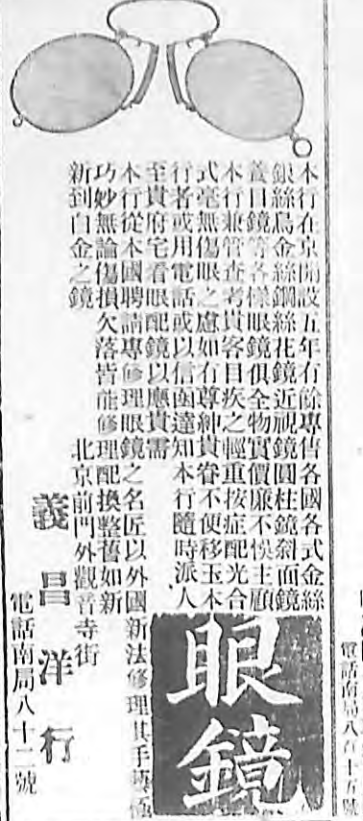 本行在京開設五年有餘專售各國各式金絲
銀絲烏金絲鋼絲花鏡近視鏡圓柱鏡斜面鏡
蓋目鏡等各樣眼鏡俱全物實價廉不悞主顧
本行兼管查考貴客目疾之輕重按症配光合
式毫無傷眼之慮如有尊紳貴眷不便移玉本
行者或用電話或以信函達知本行隨時派人
至貴府宅看眼配鏡以應貴需
本行從本國聘請專修理眼鏡之名匠以外國新法修理其手藝極
巧妙無論傷損欠落皆能修理配換整舊如新
新到白金之鏡
眼鏡
北京前門外觀音寺街
義昌洋行
電話南局八十二號
電話南局八百十五號